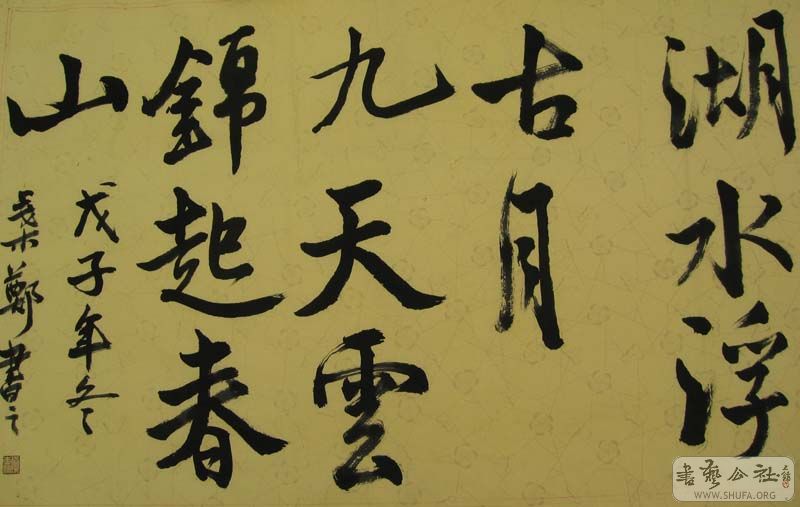 湖水浮
古月
九天雲
錦起春
山
戊子年冬
書之
書藝公社
WWW.SHUFA.ORG